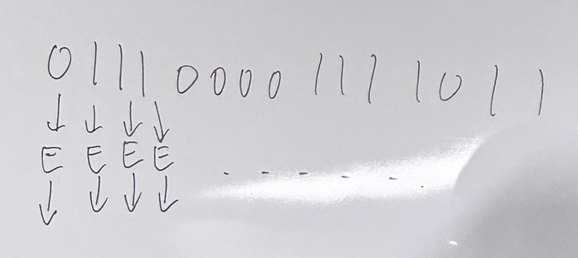 0111 0000 111 1011
↓ ↓ ↓ ↓
E E E E ------
↓ ↓ ↓ ↓